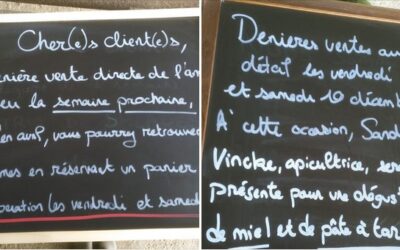 Cher(e)s client(e)s,
nière vente directe de l'an
eu la semaine prochaine,
en avril, vous pourrez retrouver
mes en réservant un panier
les vendredi et samedi
Denieres ventes au
détail les vendredi
et samedi 10 décem
A' cette occasion, Sand
Vincke, apicultrice, sera
présente pour une dégust
de miel et de pâte à tar